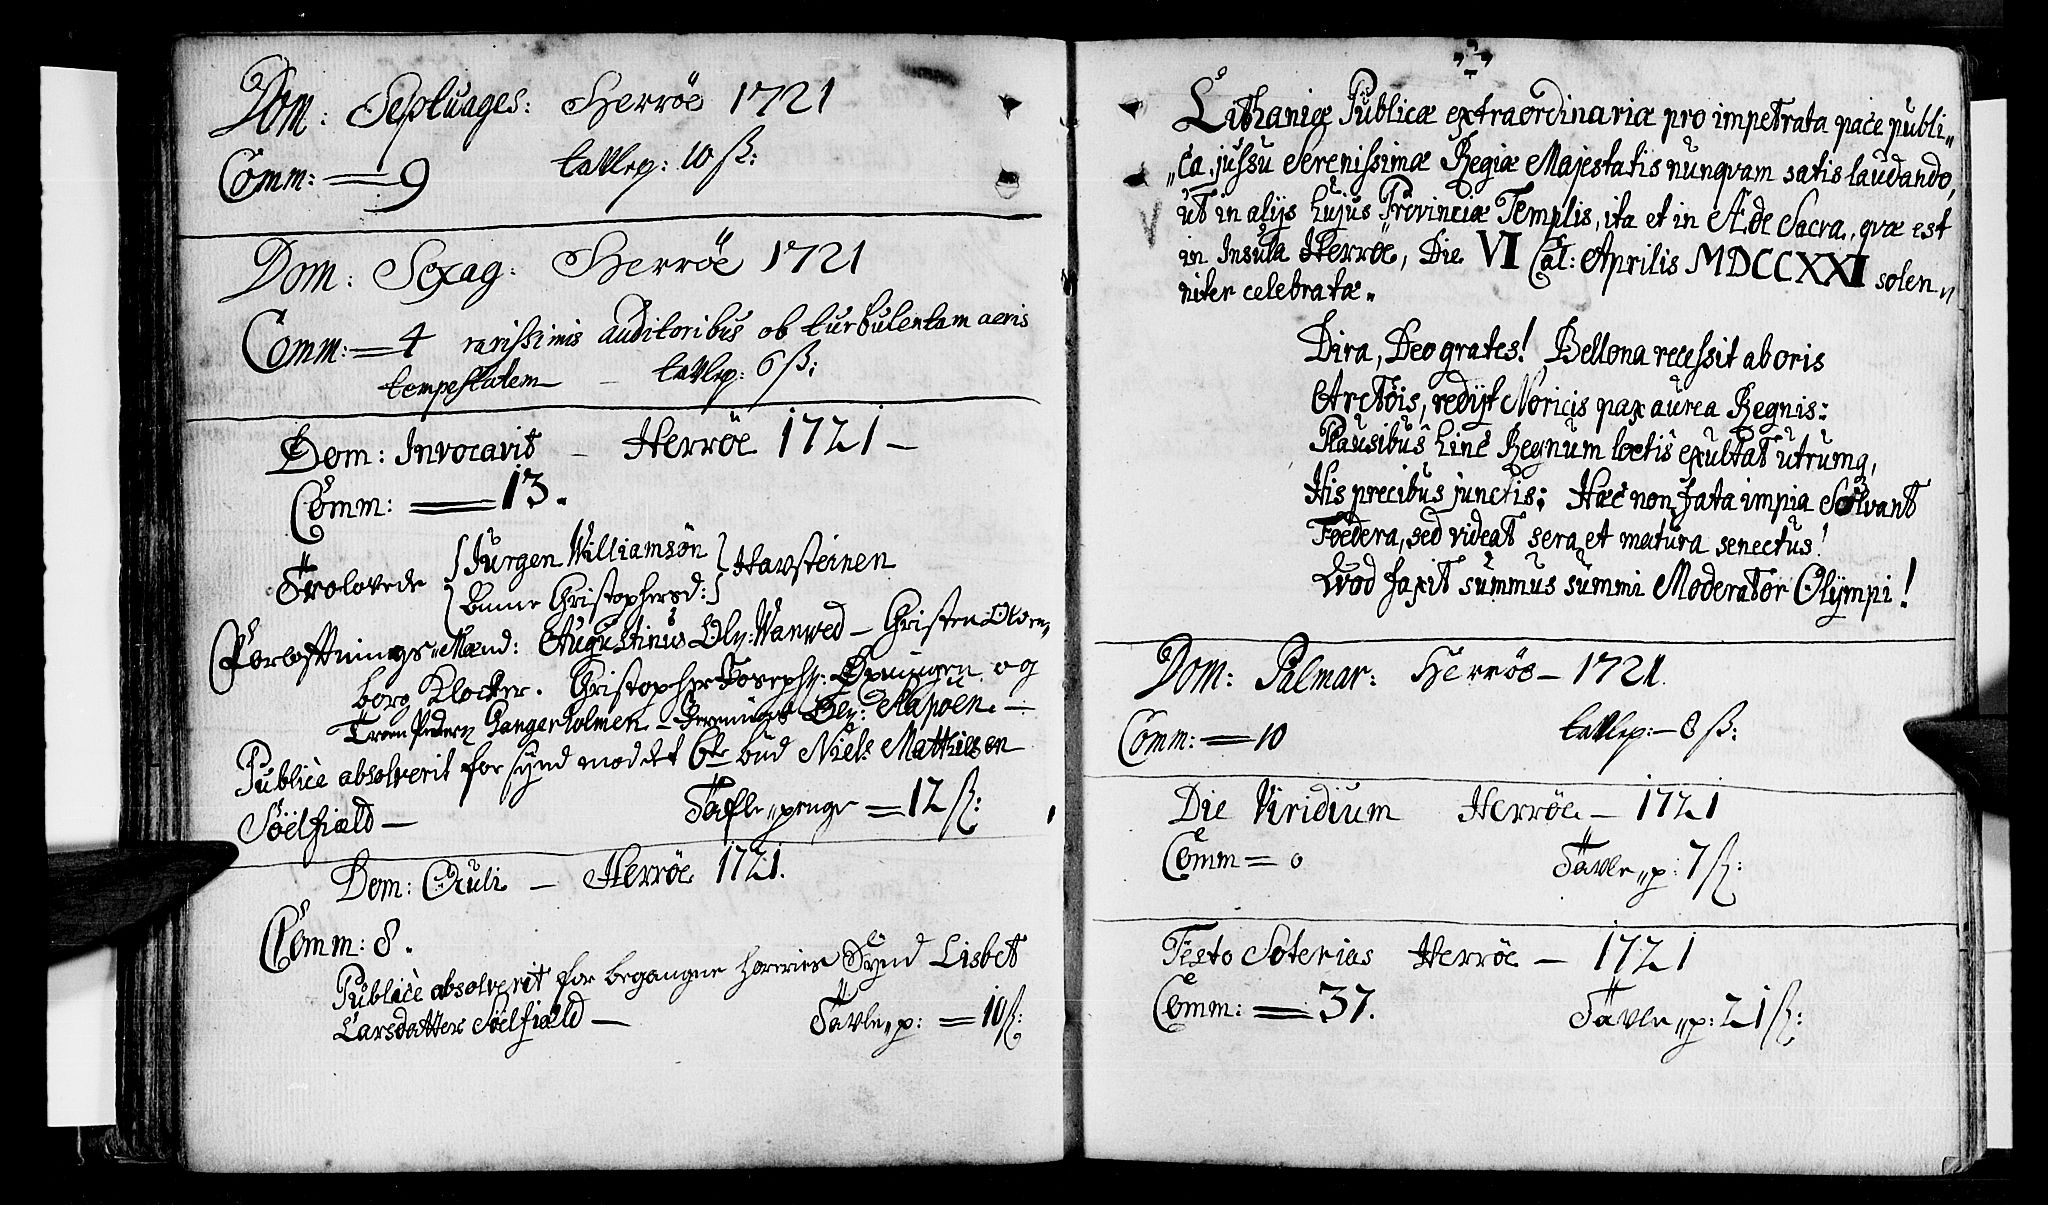 Dom: Septuages: Herröe 1721
Comm: = 9 tavlep: 10 ß:
Dom: Sexag: Herröe 1721
Comm: = 4 rarissimis auditoribus ob turbulentam aeris
tempestatem – tavlep: 6 ß:
Dom: Invocavit – Herröe 1721 –
Comm: = 13.
Trolovede { Jurgen Williamsøn } Havsteinen
{ Christophersd: }
Forloftnings Mænd: Augustinus Ols: Wanwed – Christen
borg Klocker. Christopher Joseph: og
Tron Peders: Hangerholmen – Ols:
Publicè absolverit for synd mod det 6te bud Niels Mathiesen
Söelfiæld –
Tafle„penge = 12 ß:
Dom: Oculi – Herröe 1721.
Comm: 8.
Publicè absolverit for begangne Synd Lisbet
Larsdatter Söelfiæld – Tavle„p: = 10 ß:
Lithaniæ Publicæ extraordinariæ pro impetrata pace publi„
„ca, jussu Serenissimæ Regiæ Majestatis nunqvam satis laudando,
ut in alijs hujus Provinciæ Templis, ita et in Æde Sacra, qvæ est
in Insula Herröe, Die VI Cal: Aprilis MDCCXXI solen„
niter celebratæ.
Dira, Deo grates! Bellona recessit ab oris
Arctois, redijt Noricis pax aurea Regnis:
Plausibus hinc Regnum lætis exultat utrumq,
His precibus junctis: Hæc non fata impia Solvant
Foedera, sed videat sera et matura senectus!
Qvod faxit summus summi Moderator Olympi!
Dom: Palmar: Herröe – 1721.
Comm: = 10 tavlep: – 8 ß:
Die Viridium Herröe – 1721
Comm = 0 Tavle„p: 7 ß:
Festo Soterias Herröe – 1721
Comm: = 37. Tavle„p: 21 ß: